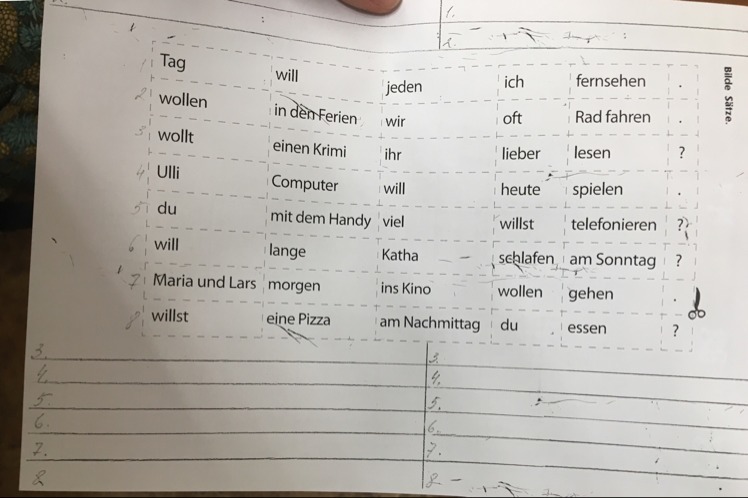 1.
2.
Bilde Sätze.
1 Tag will jeden ich fernsehen .
2 wollen in den Ferien wir oft Rad fahren .
3 wollt einen Krimi ihr lieber lesen ?
4 Ulli Computer will heute spielen .
5 du mit dem Handy viel willst telefonieren ?
6 will lange Katha schlafen am Sonntag ?
7 Maria und Lars morgen ins Kino wollen gehen .
8 willst eine Pizza am Nachmittag du essen ?
3. 3.
4. 4.
5. 5.
6. 6.
7. 7.
8 8